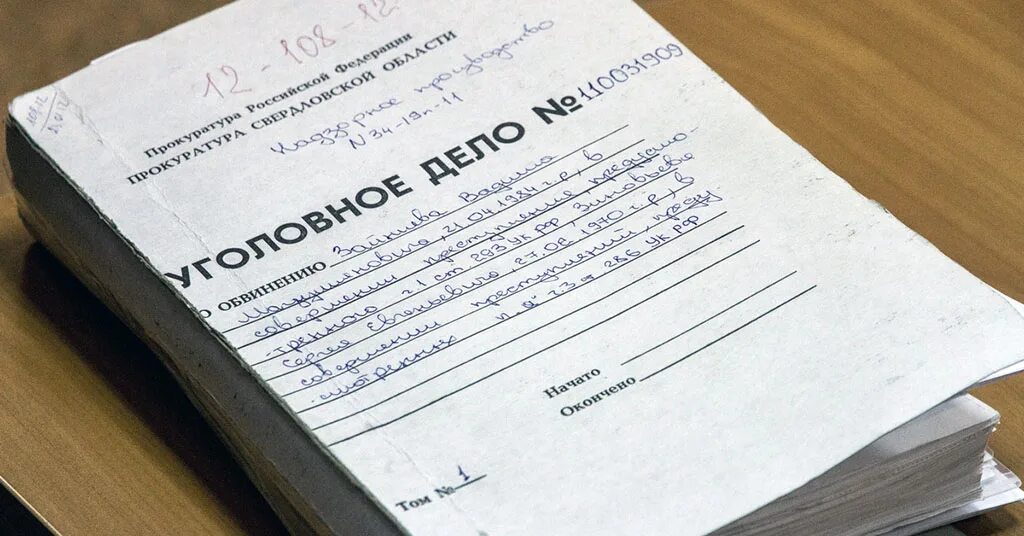 12-108-12
Прокуратура Российской Федерации
ПРОКУРАТУРА СВЕРДЛОВСКОЙ ОБЛАСТИ
Надзорное производство
N 34-19п-11
УГОЛОВНОЕ ДЕЛО № 110031909
О ОБВИНЕНИЮ Зайкиева Вадима
21.04.1984 г.р., в
совершении преступления предусмо-
-тренного ч.1 ст. 293 УК РФ Зиновьева
Сергея Евгеньевича, 27.06.1970 г.р., в
совершении преступлений, преду
-смотренных п. "в" ч.3 ст. 286 УК РФ
Начато
Окончено
Том № 1